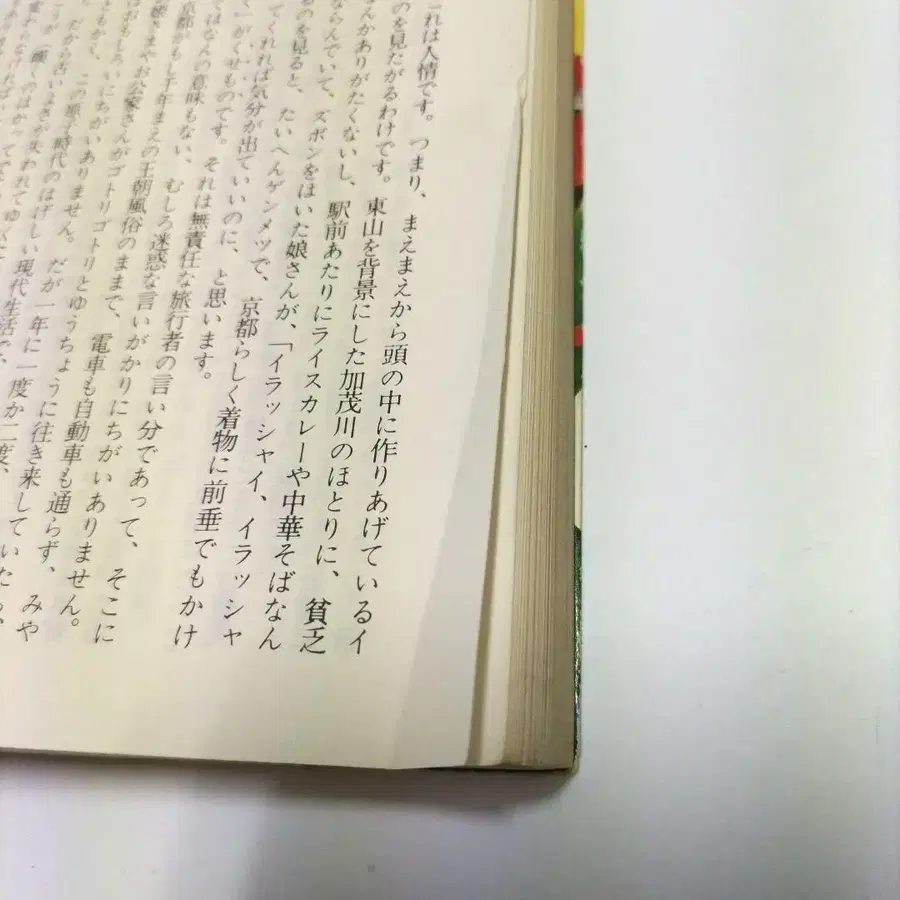 これは人情です。つまり、まえまえから頭の中に作りあげているイ
のを見たがるわけです。東山を背景にした加茂川のほとりに、貧乏
なんかありがたくないし、駅前あたりにライスカレーや中華そばなん
ならんでいて、ズボンをはいた娘さんが、「イラッシャイ、イラッシャ
るのを見ると、たいへんゲンメツで、京都らしく着物に前垂でもかけ
てくれれば気分が出ていいのに、と思います。
」がくせものです。それは無責任な旅行者の言い分であって、そこに
ではなんの意味もない、むしろ迷惑な言いがかりにちがいありません。
京都がもし千年まえの王朝風俗のままで、電車も自動車も通らず、みや
娘さまやお公家さんがゴトリゴトリとゆうちょうに往き来していたら、
はおもしろいにちがいありません。だが一年に一度か二度、
ともかく、この
時代のはげしい現代生活で、
だから古いよさが失われてゆく